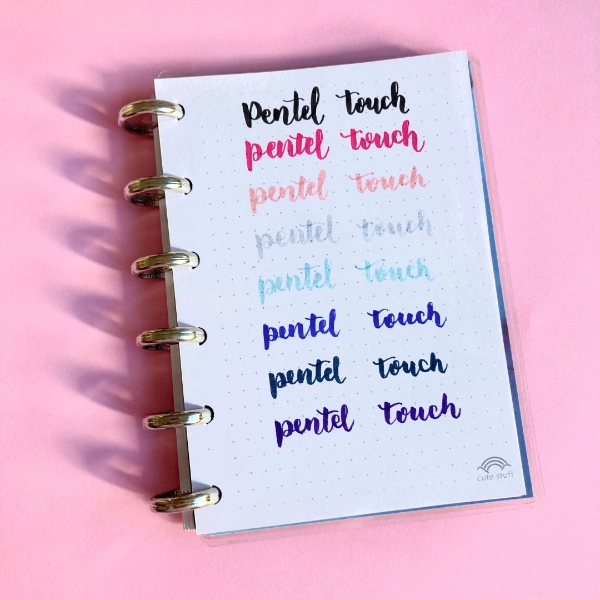 Pentel touch
pentel touch
pentel touch
pentel touch
pentel touch
pentel touch
pentel touch
pentel touch
cute stuff